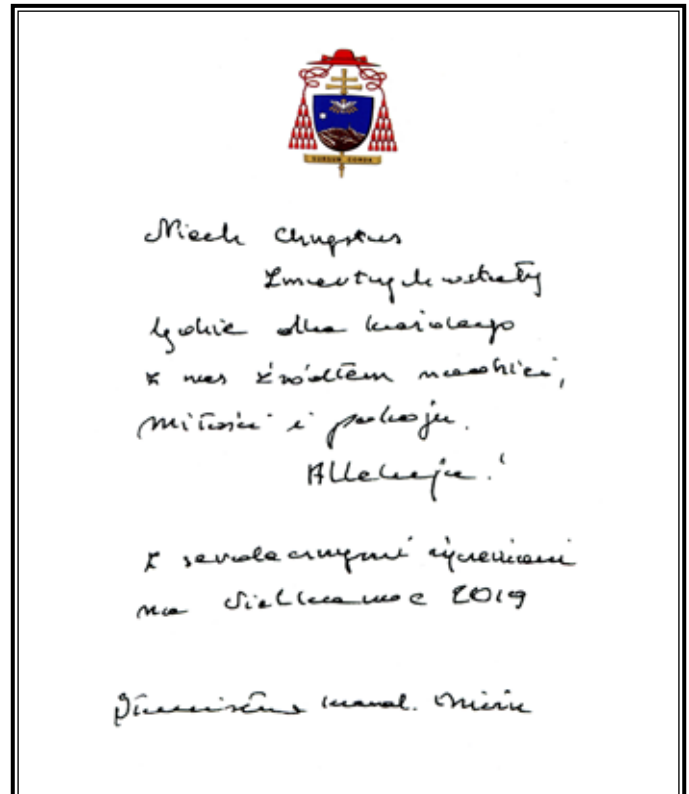 SURSUM CORDA
Niech Chrystus
Zmartwychwstały
będzie dla każdego
z nas źródłem nadziei,
miłości i pokoju.
Alleluja!
Z serdecznymi życzeniami
na Wielkanoc 2019
Kazimierz kard. Nycz